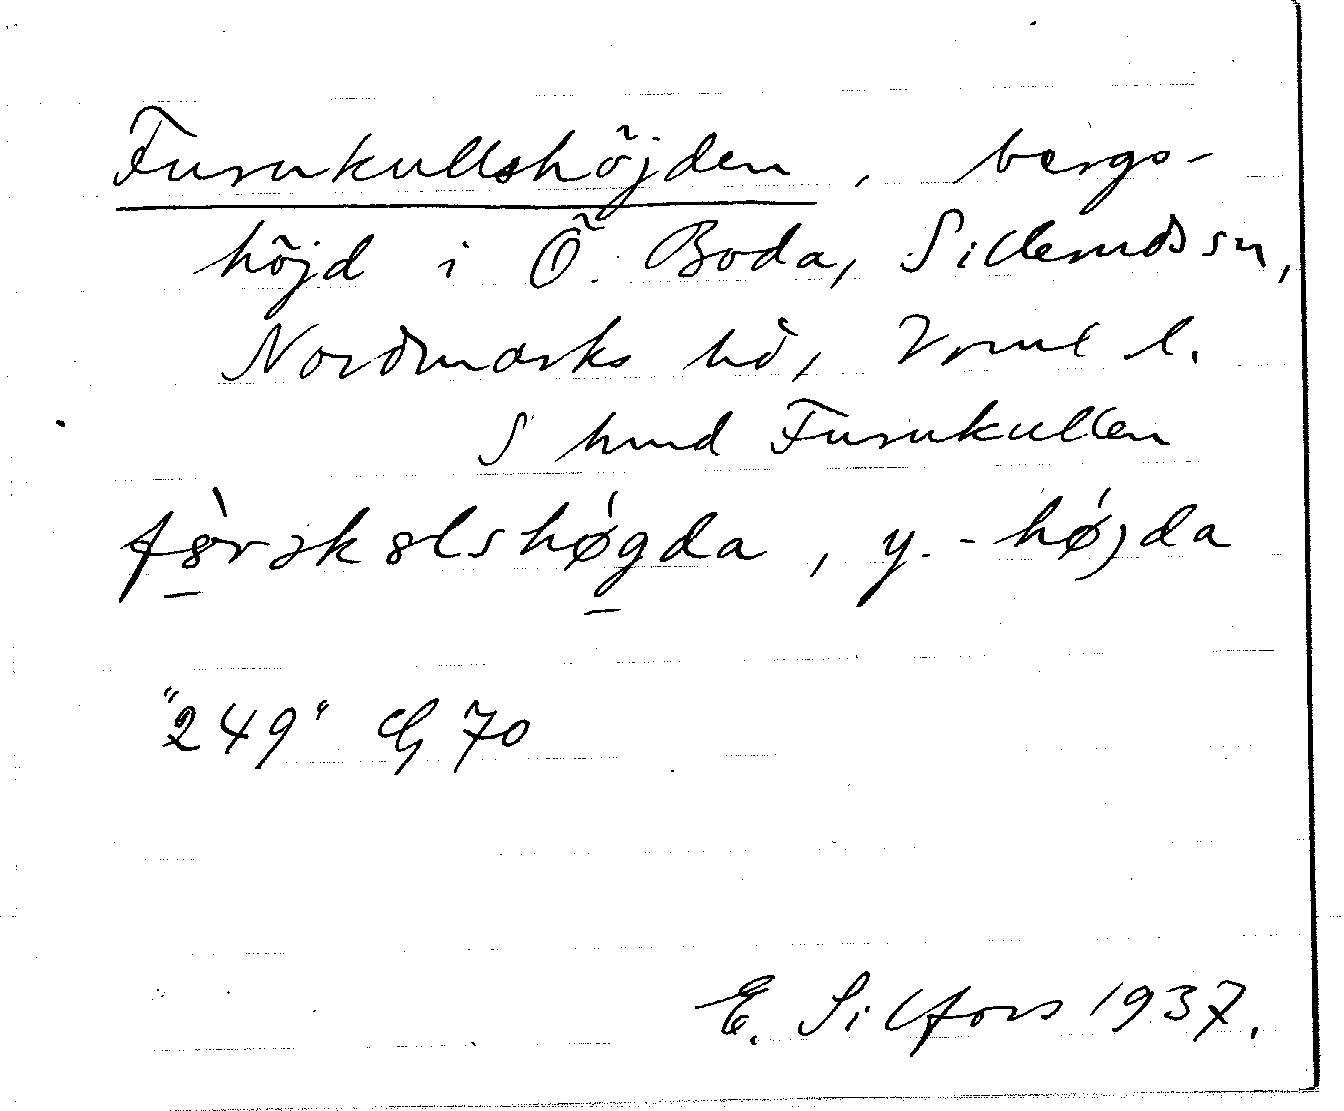 Furukullshöjden, bergs-
höjd i Ö. Boda, Silleruds sn,
Nordmarks hd, Vrml l.
S k[un]d Furukullen
fȣ̀rəkȣlshǿgda, y. -hǿjda
"249" G 70
E. Silfors 1937.